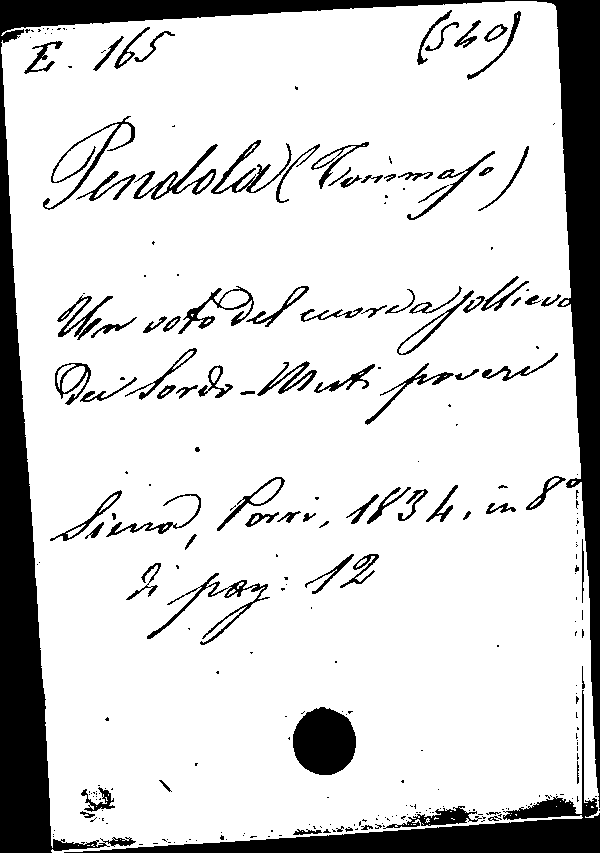 E. 165 (540)
Pendola (Tommaso)
Un voto del cuore a sollievo
dei Sordo-Muti poveri
Siena, Porri, 1834, in 8°
di pag: 12